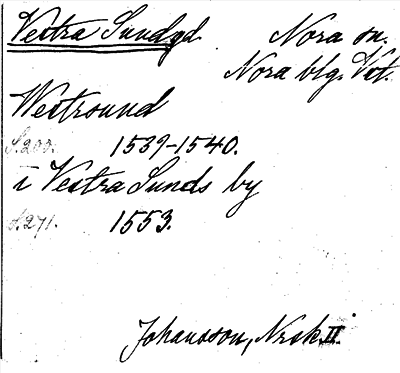 Vestra Sundgd Nora sn.
Nora blg. Vst.
Westround
S. 233. 1539-1540.
i Vestra Sunds by
S. 271. 1553.
Johansson, Nrsk. II.